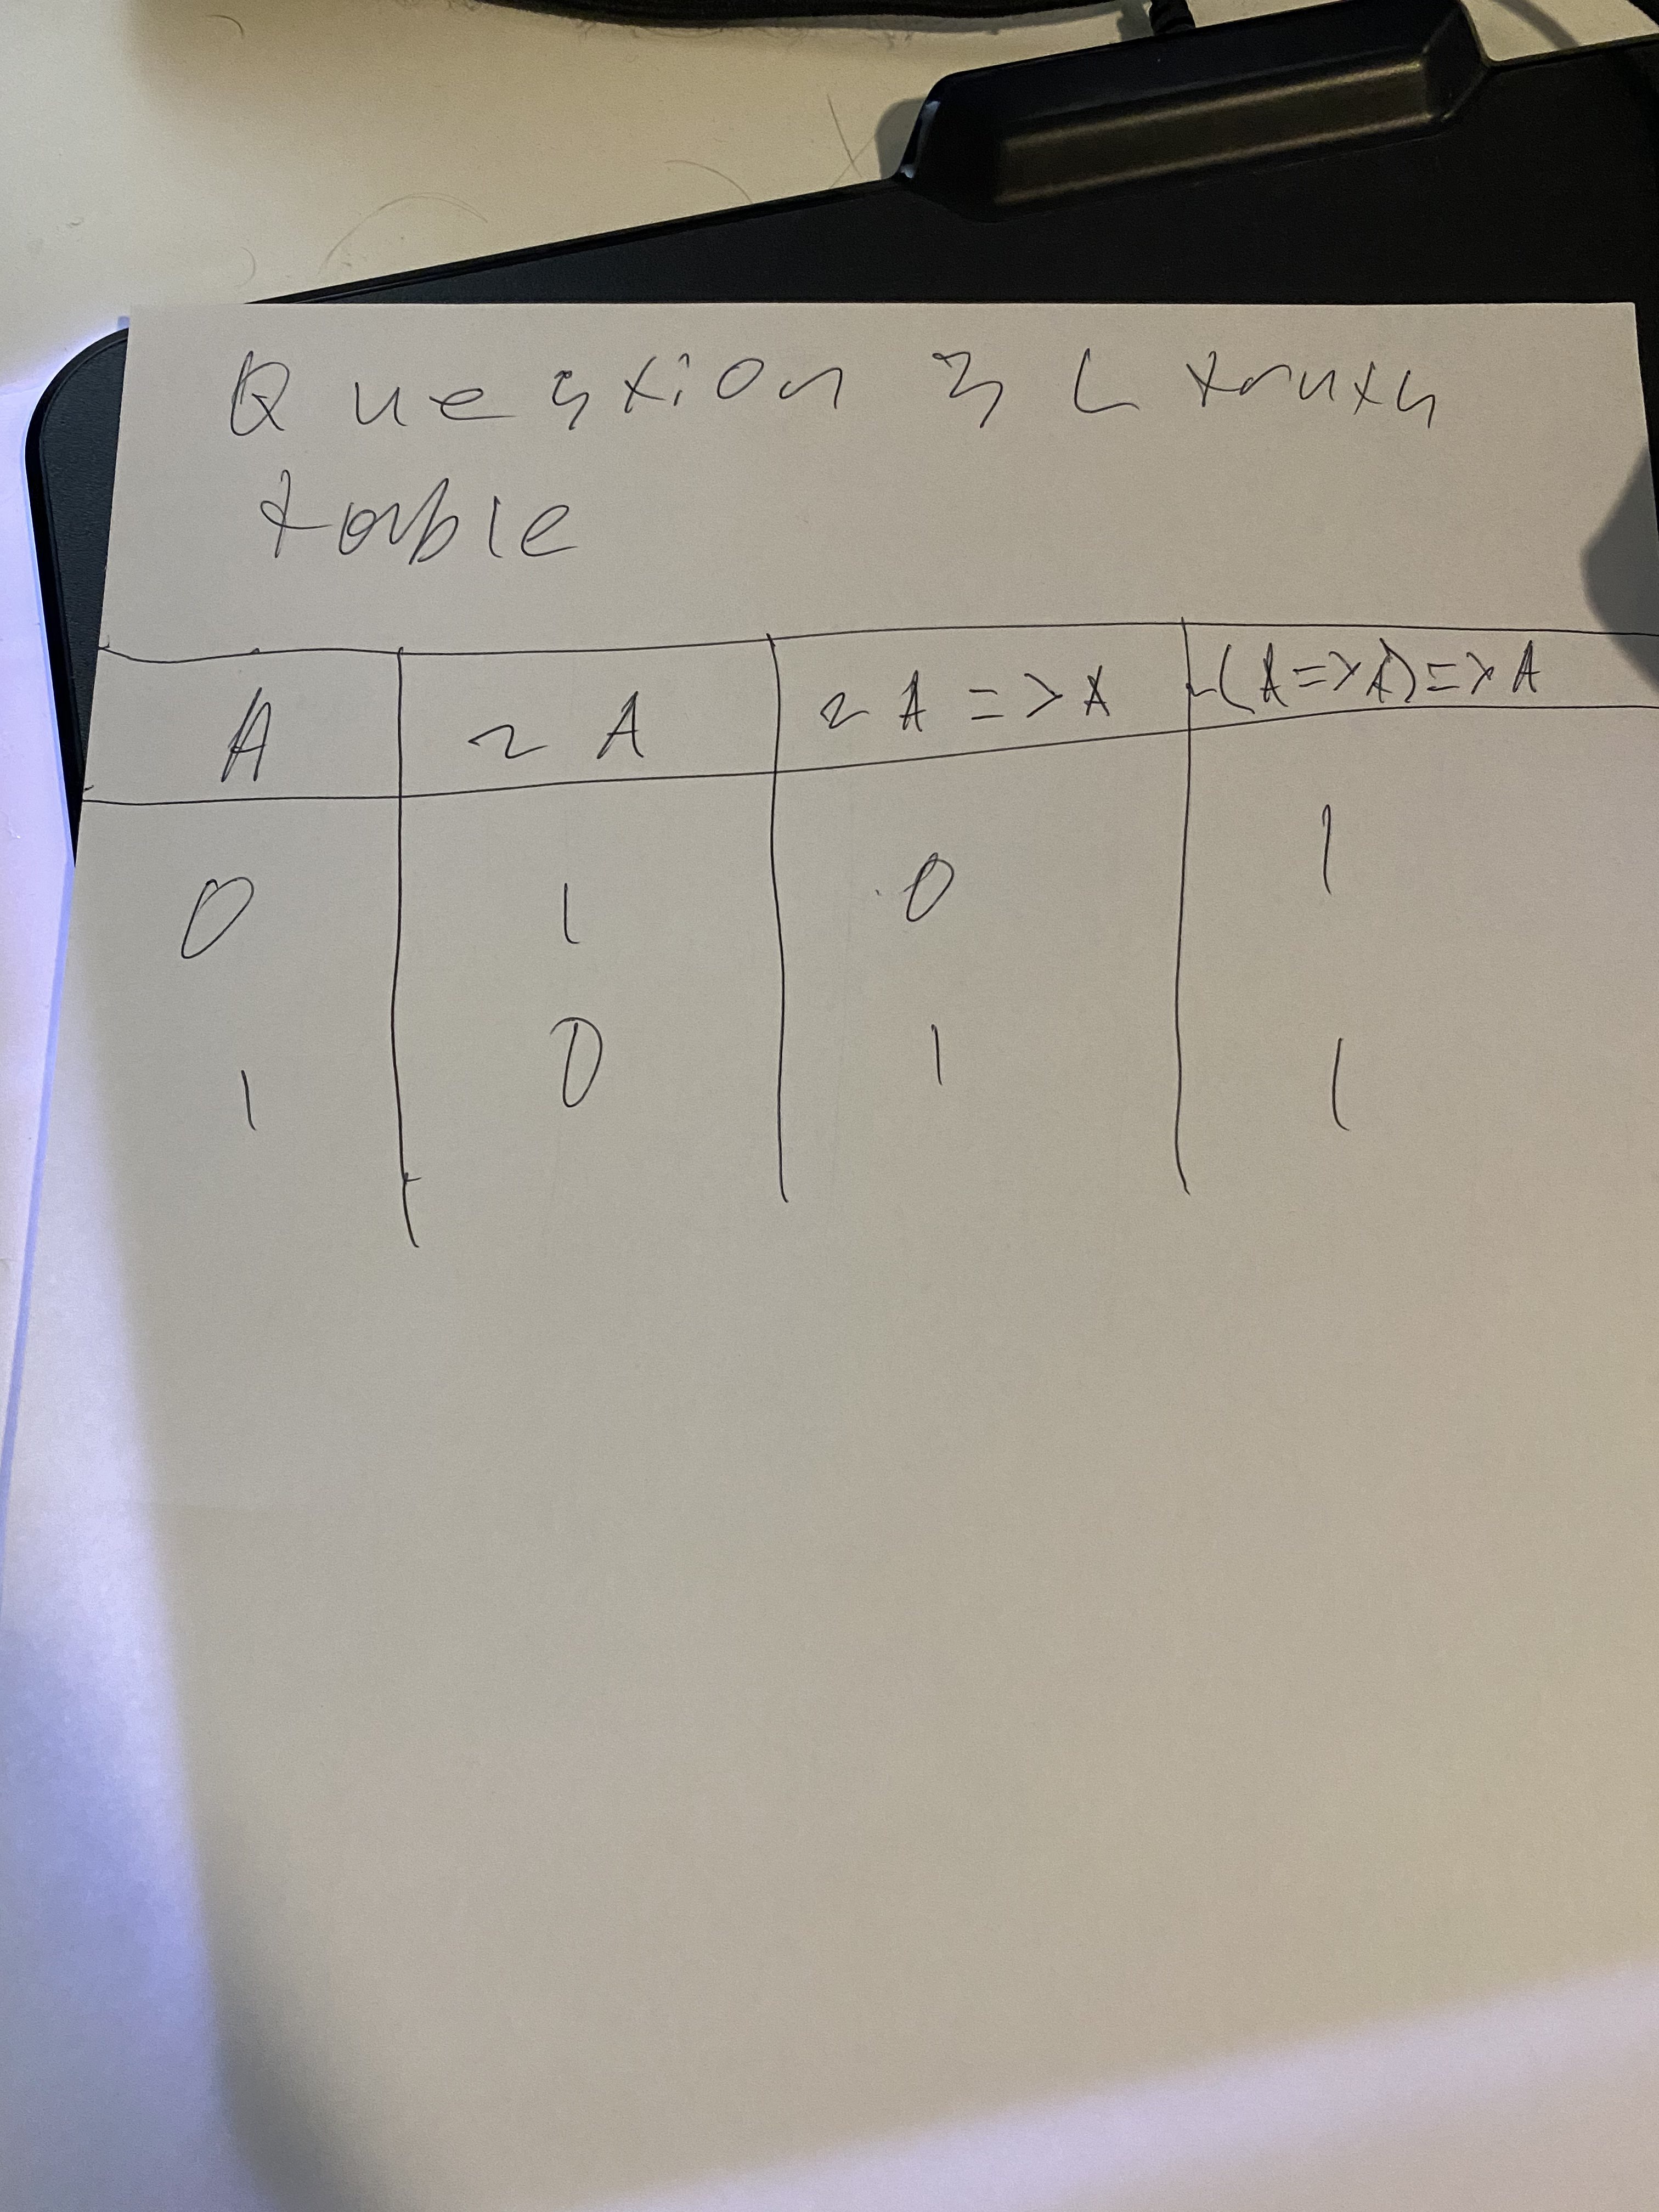 Question 3 C truth
table
A ~ A ~ A => A ~(A=>A)=>A
0 1 0 1
1 0 1 1